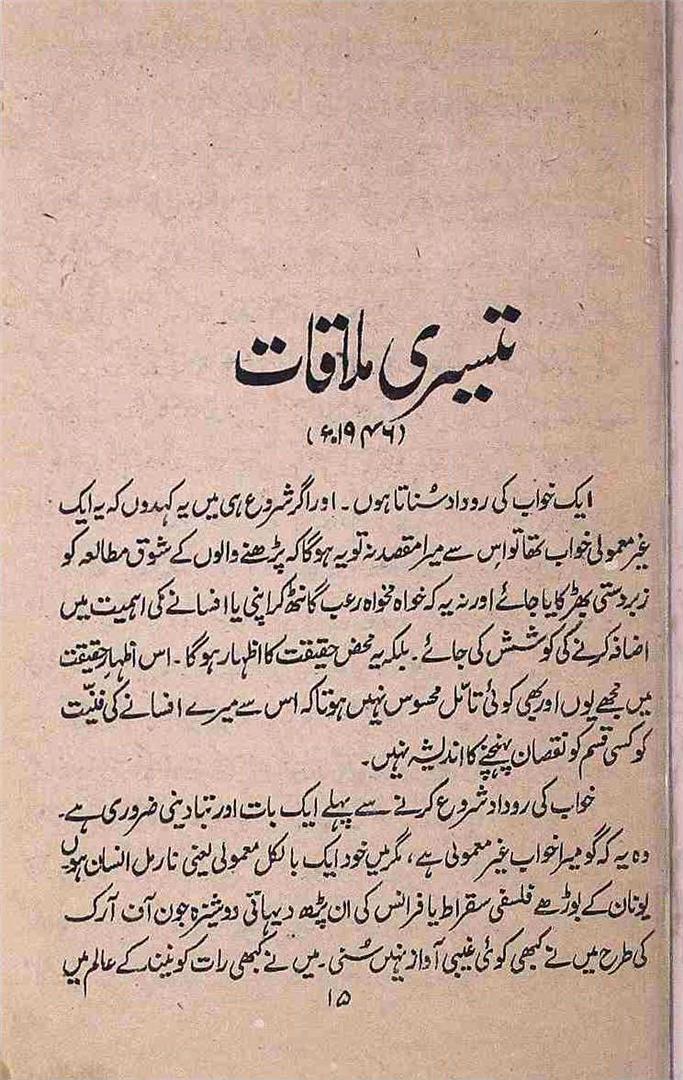 تیسری ملاقات
(۱۹۴۶ء)
ایک خواب کی روداد سُناتا ہوں۔ اور اگر شروع ہی میں یہ کہدوں کہ یہ ایک
غیر معمولی خواب تھا تو اس سے میرا مقصد نہ تو یہ ہوگا کہ پڑھنے والوں کے شوق مطالعہ کو
زبردستی بھڑکایا جائے اور نہ یہ کہ خواہ مخواہ رعب گانٹھ کر اپنی یا افسانے کی اہمیت میں
اضافہ کرنے کی کوشش کی جائے۔ بلکہ یہ محض حقیقت کا اظہار ہوگا۔ اس اظہارِ حقیقت
میں مجھے یوں اور بھی کوئی تامّل محسوس نہیں ہوتا کہ اس سے میرے افسانے کی فنیّت
کو کسی قسم کو نقصان پہنچنے کا اندیشہ نہیں۔
خواب کی روداد شروع کرنے سے پہلے ایک بات اور بتا دینی ضروری ہے۔
وہ یہ کہ گو میرا خواب غیر معمولی ہے، مگر میں خود ایک بالکل معمولی یعنی نارمل انسان ہوں
یونان کے بوڑھے فلسفی سقراط یا فرانس کی ان پڑھ دیہاتی دوشیزہ جون آف آرک
کی طرح میں نے کبھی کوئی غیبی آواز نہیں سُنی۔ میں نے کبھی رات کو نیند کے عالم میں
۱۵